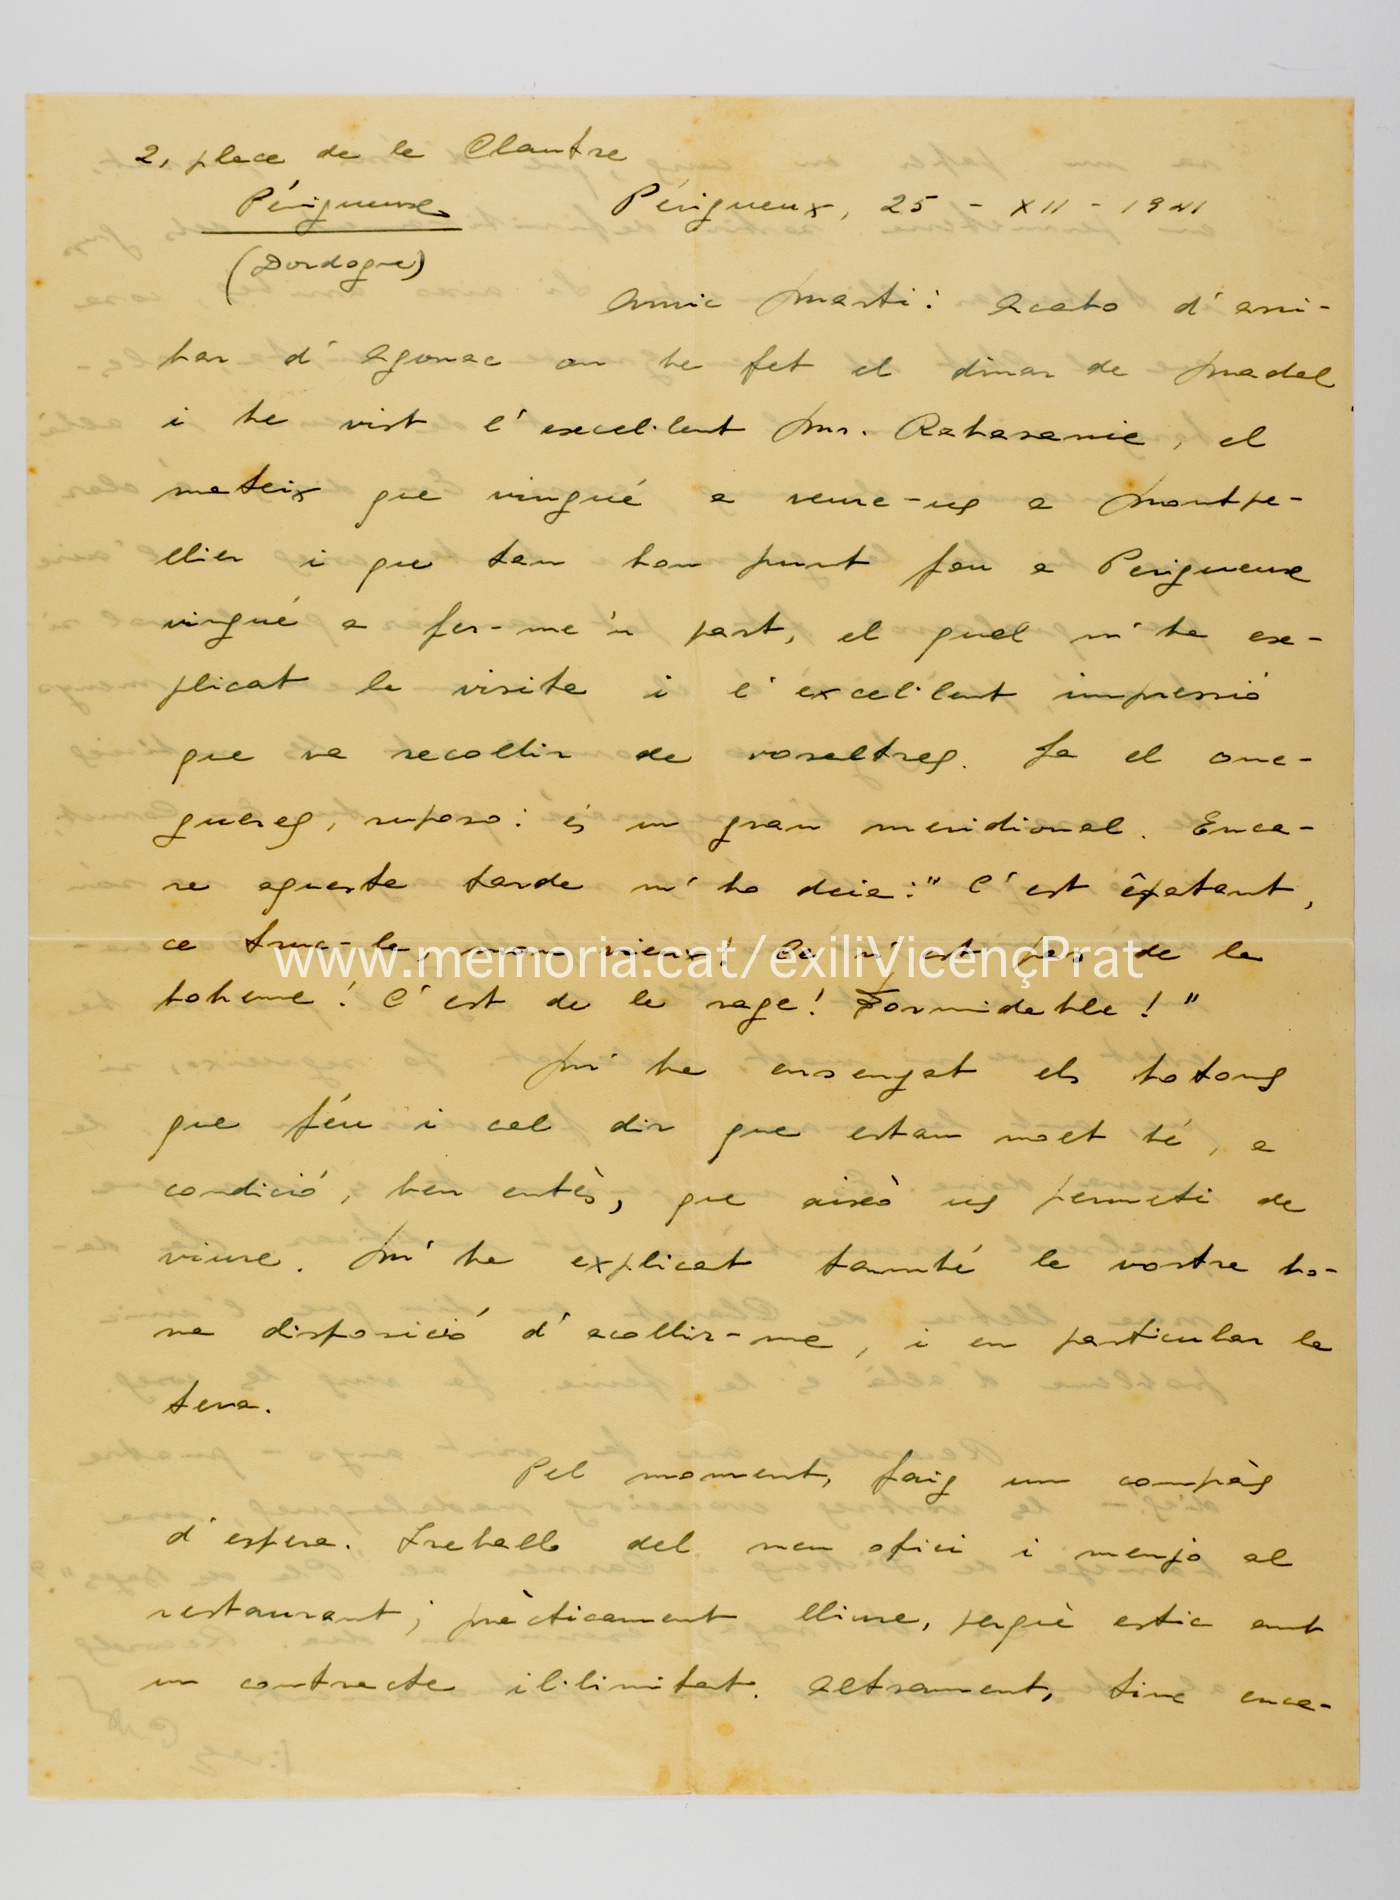 2, place de la Clautre
Périgueux
(Dordogne)
Périgueux, 25 - XII - 1941
Amic Martí: Acabo d'arri-
bar d'Agonac on he fet el dinar de Nadal
i he vist l'excel·lent Mr. Rabasanie, el
mateix que vingué a veure-us a Montpe-
llier i que tan bon punt fou a Perigueux
vingué a fer-me'n part, el qual m'ha ex-
plicat la visita i l'excel·lent impressió
que va recollir de vosaltres. Ja el cone-
guéreu, suposo: és un gran meridional. Enca-
ra aquesta tarda m'ho deia: "C'est épatant,
ce truc-là, mon vieux! Ce n'est pas de la
boheme! C'est de la rage! Formidable!"
M'ha ensenyat els botons
que féu i cal dir que estan molt bé, a
condició, ben entès, que això us permeti de
viure. M'ha explicat també la vostra bo-
na disposició d'acollir-me, i en particular la
teva.
Pel moment, faig un compàs
d'espera. Treballo del meu ofici i menjo al
restaurant; pràcticament lliure, perquè estic amb
un contracte il·limitat. Altrament, tinc enca-
www.memoria.cat/exiliVicençPrat